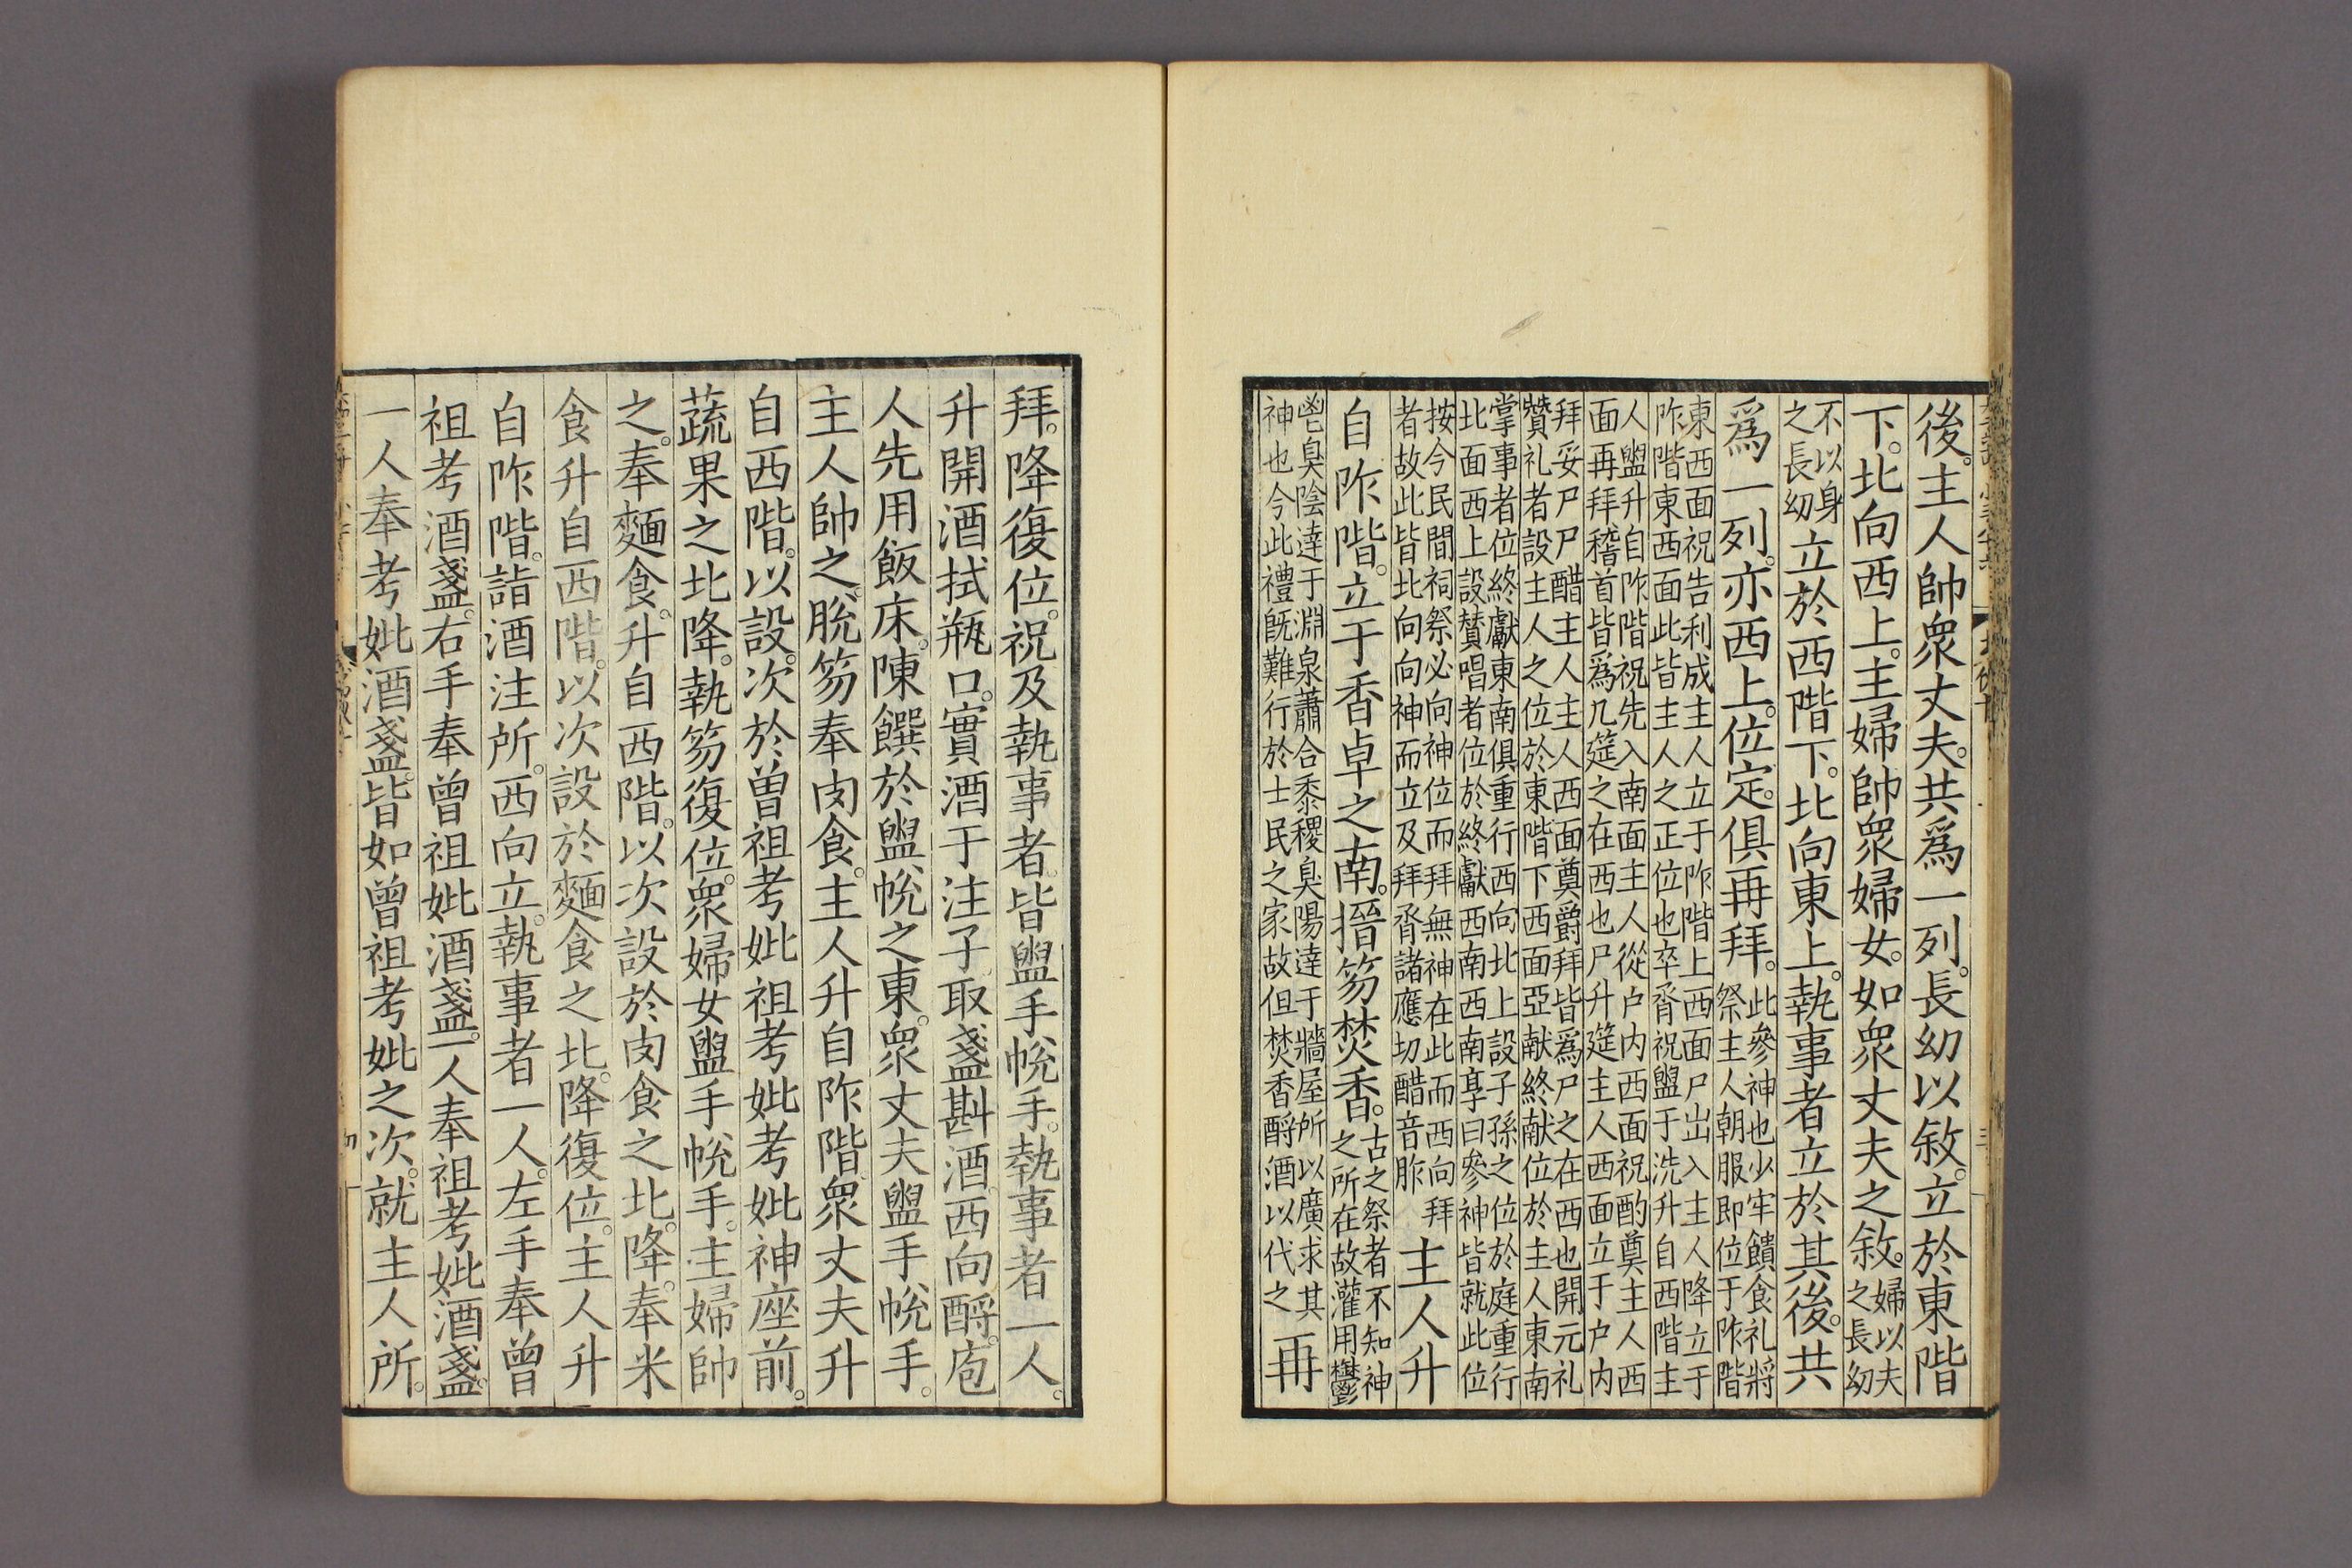 後。主人帥衆丈夫。共爲一列。長幼以敘。立於東階
下。北向西上。主婦帥衆婦女。如衆丈夫之敘。婦以夫之長幼
不以身之長幼立於西階下。北向東上。執事者立於其後。共
爲一列。亦西上。位定。俱再拜。此參神也少牢饋食礼將祭主人朝服即位于阼階
東西面祝告利成主人立于阼階上西面尸出入主人降立于
阼階東西面此皆主人之正位也卒脀祝盥于洗升自西階主
人盥升自阼階祝先入南面主人從户内西面祝酌奠主人西
面再拜稽首皆爲几筵之在西也尸升筵主人西面立于户内
拜妥尸尸醋主人主人西面奠爵拜皆爲尸之在西也開元礼
贊礼者設主人之位於東階下西面亞献終献位於主人東南
掌事者位終獻東南俱重行西向北上設子孫之位於庭重行
北面西上設贊唱者位於終獻西南西南享曰參神皆就此位
按今民間祠祭必向神位而拜無神在此而西向拜
者故此皆北向向神而立及拜脀諸應切醋音胙主人升
自阼階。立于香卓之南。搢笏焚香。古之祭者不知神之所在故灌用鬱
鬯臭陰達于淵泉蕭合黍稷臭陽達于牆屋所以廣求其
神也今此禮既難行於士民之家故但焚香酹酒以代之再
拜。降復位。祝及執事者。皆盥手帨手。執事者一人。
升開酒拭瓶口。實酒于注子。取盞斟酒。西向酹。庖
人先用飯床。陳饌於盥帨之東。衆丈夫盥手帨手。
主人帥之。脫笏奉肉食。主人升自阼階。衆丈夫升
自西階。以設。次於曾祖考妣祖考妣考妣神座前。
蔬果之北。降。執笏復位。衆婦女盥手帨手。主婦帥
之。奉麵食。升自西階。以次設於肉食之北。降。奉米
食升自西階。以次設於麵食之北。降復位。主人升
自阼階。詣酒注所。西向立。執事者一人。左手奉曾
祖考酒盞。右手奉曾祖妣酒盞。一人奉祖考妣酒盞。
一人奉考妣酒盞。皆如曾祖考妣之次。就主人所。